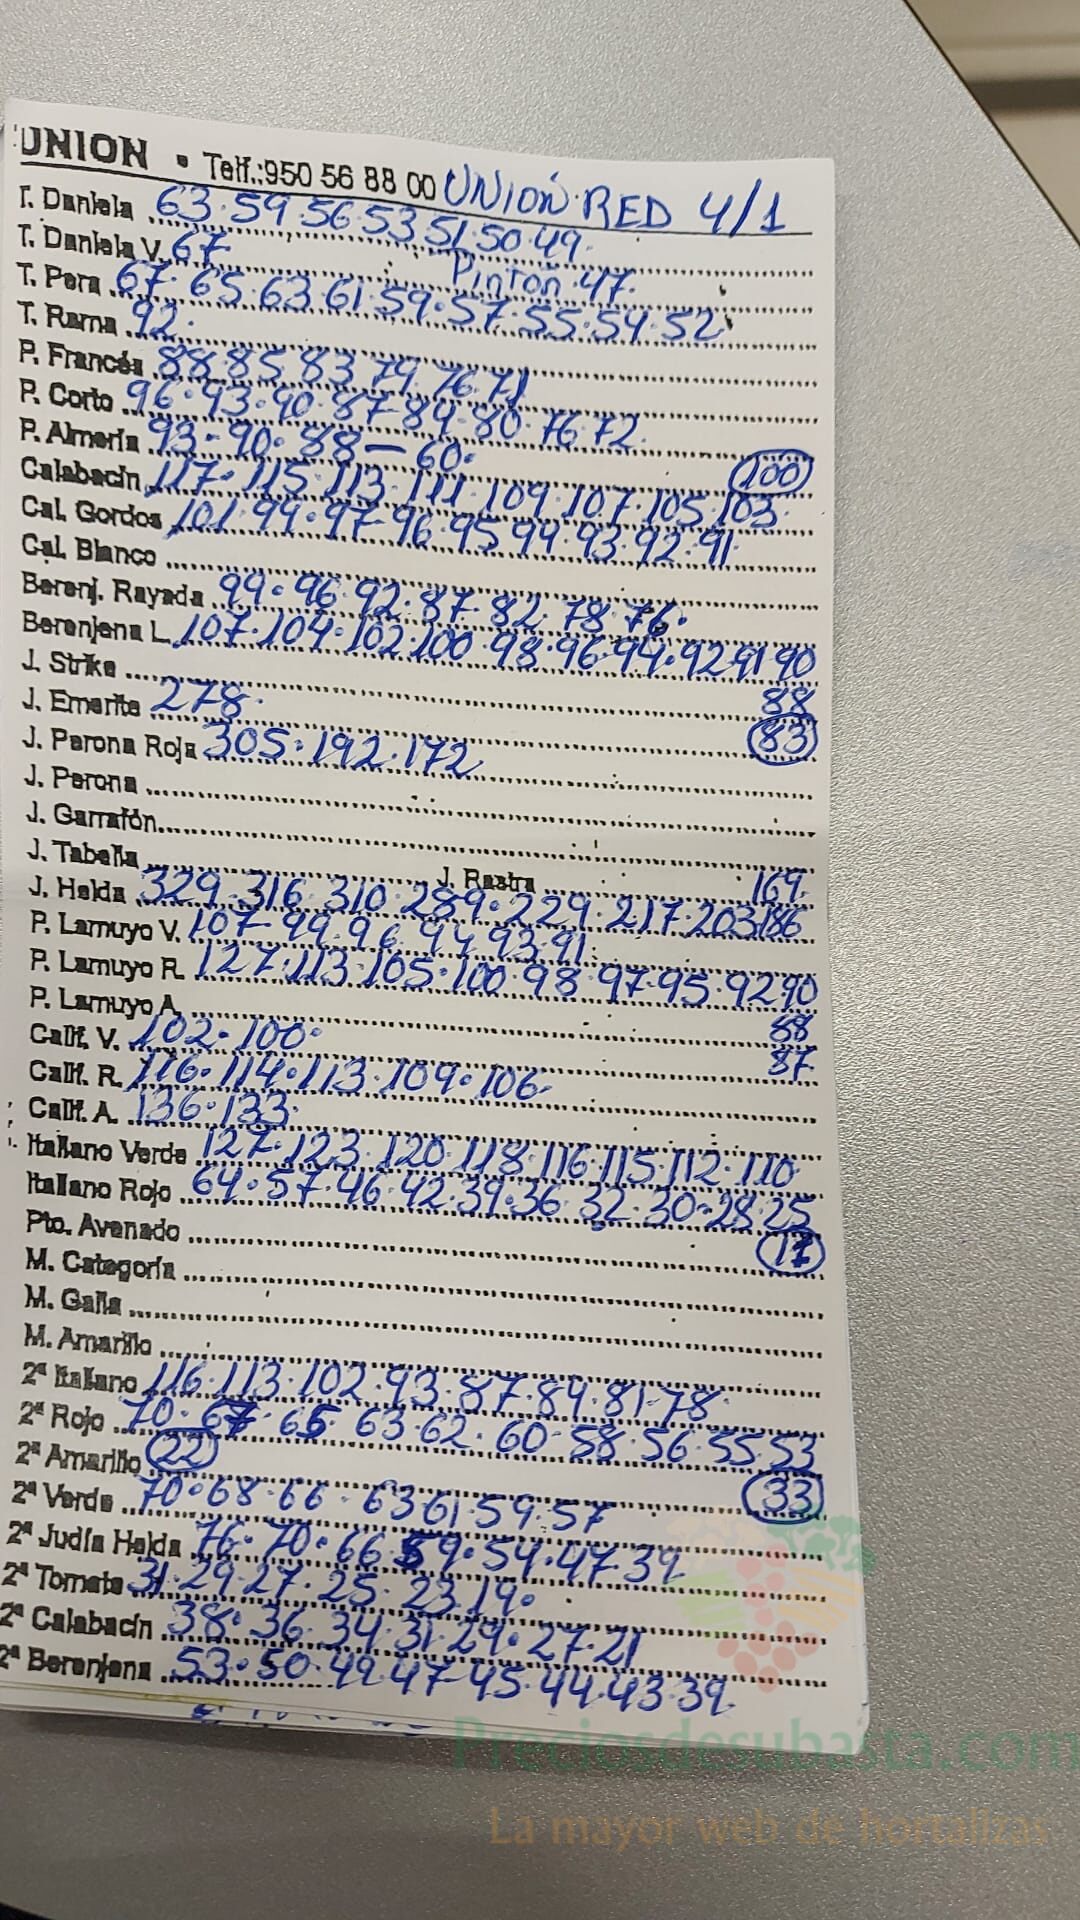 UNION • Telf.:950 56 88 00 UNIÓN RED 4/1
T. Daniela 63·59·56·53·51·50·49·
T. Daniela V. 67 Pintón 47·
T. Pera 67·65·63·61·59·57·55·54·52
T. Rama 92·
P. Francés 88·85·83·79·76·71
P. Corto 96·93·90·87·84·80·76·72·
P. Almería 93·90·88—60· 100
Calabacín 117·115·113·111·109·107·105·103·
Cal. Gordos 101·99·97·96·95·94·93·92·91·
Cal. Blanco
Berenj. Rayada 99·96·92·87·82·78·76·
Berenjena L. 107·104·102·100·98·96·94·92·91·90
J. Strike 88
J. Emerite 278· 83
J. Perona Roja 305·192·172
J. Perona
J. Garrafón
J. Tabella J. Rastra 169·
J. Helda 329·316·310·289·229·217·203·186
P. Lamuyo V. 107·99·96·94·93·91·
P. Lamuyo R. 127·113·105·100·98·97·95·92·90
P. Lamuyo A. 88
Calif. V. 102·100· 87
Calif. R. 116·114·113·109·106·
Calif. A. 136·133·
Italiano Verde 127·123·120·118·116·115·112·110
Italiano Rojo 64·57·46·42·39·36·32·30·28·25
Pto. Avenado 17
M. Categoría
M. Galia
M. Amarillo
2ª Italiano 116·113·102·93·87·84·81·78·
2ª Rojo 70·67·65·63·62·60·58·56·55·53
2ª Amarillo 22 33
2ª Verde 70·68·66·63·61·59·57
2ª Judía Helda 76·70·66·59·54·47·39
2ª Tomate 31·29·27·25·23·19·
2ª Calabacín 38·36·34·31·29·27·21
2ª Berenjena 53·50·49·47·45·44·43·39·
Preciosdesubasta.com
La mayor web de hortalizas